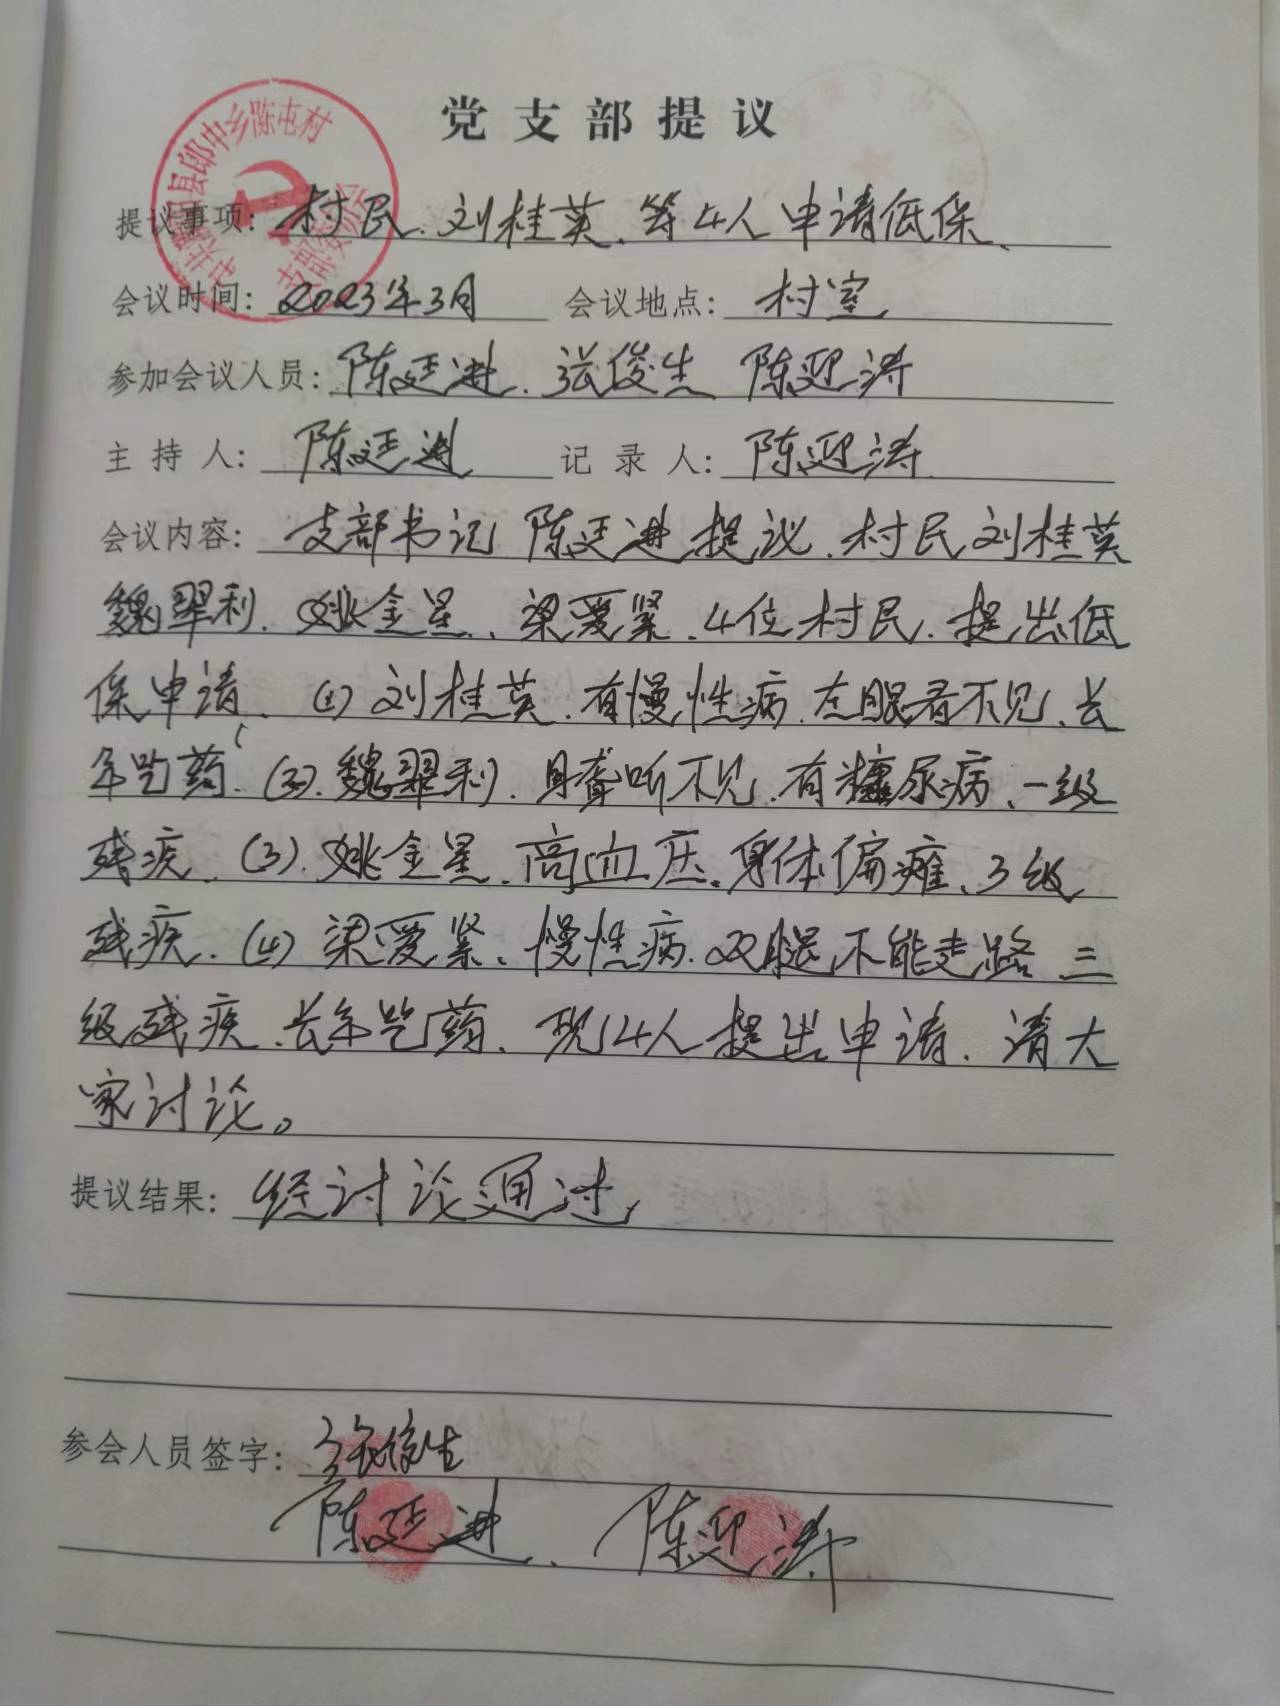 党支部提议
提议事项：村民、刘桂英、等4人申请低保、
会议时间：2023年3月 会议地点：村室
参加会议人员：陈廷进、张俊生 陈迎涛
主持人：陈廷进 记录人：陈迎涛
会议内容：支部书记陈廷进提议、村民刘桂英
魏翠利、姚金星、梁爱紧、4位村民、提出低
保申请、(1)刘桂英、有慢性病、左眼看不见、长
年吃药、(2)、魏翠利、耳聋听不见、有糖尿病、一级
残疾、(3)、姚金星、高血压、身体偏瘫、3级
残疾、(4)梁爱紧、慢性病、双腿不能走路、三
级残疾、长年吃药、现4人提出申请、请大
家讨论。
提议结果：经讨论通过
参会人员签字：张俊生
陈廷进、陈迎涛